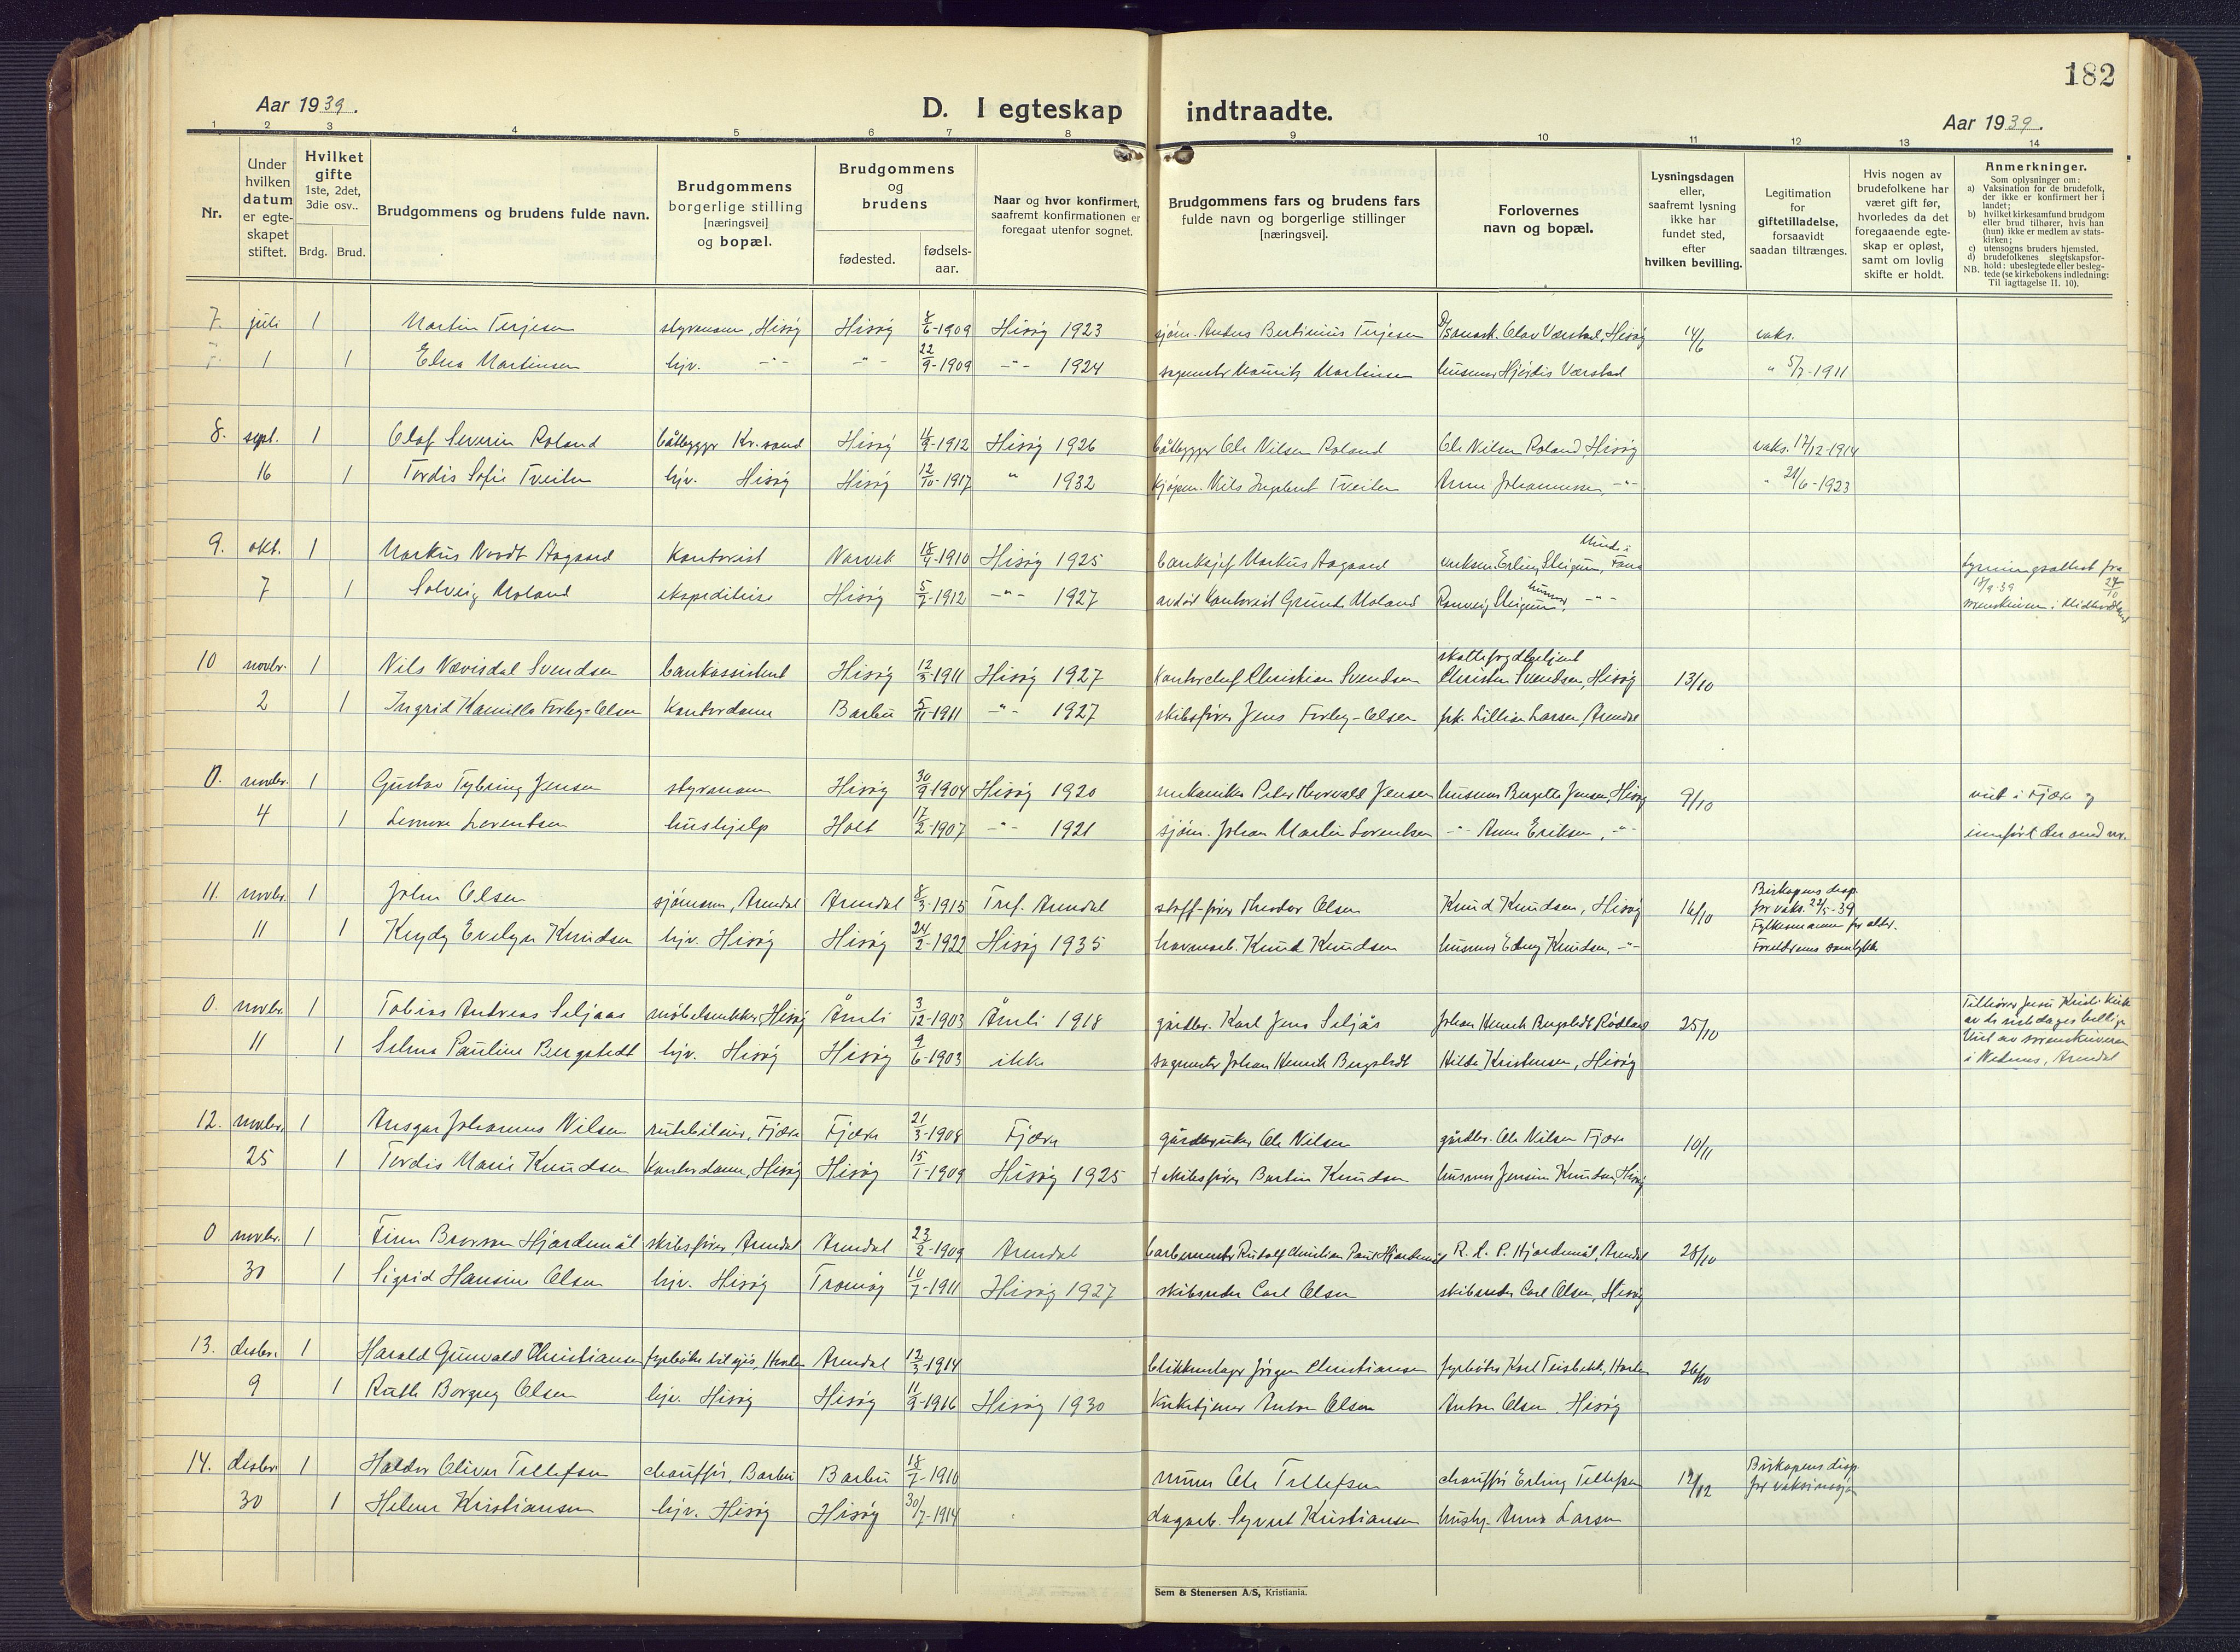 182
Aar 1939.
D. I egteskap indtraadte.
Aar 1939.
1 2 3 4 5 6 7 8 9 10 11 12 13 14
Nr.
Under hvilken datum er egteskapet stiftet.
Hvilket gifte 1ste, 2det, 3die osv..
Brdg. Brud.
Brudgommens og brudens fulde navn.
Brudgommens borgerlige stilling [næringsvei] og bopæl.
Brudgommens og brudens
fødested. fødselsaar.
Naar og hvor konfirmert, saafremt konfirmationen er foregaat utenfor sognet.
Brudgommens fars og brudens fars fulde navn og borgerlige stillinger [næringsvei].
Forlovernes navn og bopæl.
Lysningsdagen eller, saafremt lysning ikke har fundet sted, efter hvilken bevilling.
Legitimation for giftetilladelse, forsaavidt saadan tiltrænges.
Hvis nogen av brudefolkene har været gift før, hvorledes da det foregaaende egteskap er opløst, samt om lovlig skifte er holdt.
Anmerkninger.
Som oplysninger om:
a) Vaksination for de brudefolk, der ikke er konfirmert her i landet;
b) hvilket kirkesamfund brudgom eller brud tilhører, hvis han (hun) ikke er medlem av statskirken;
c) utensogns bruders hjemsted.
d) brudefolkenes slegtskapsforhold: ubeslegtede eller beslegtede (se kirkebokens indledning: Til iagttagelse II. 10).
NB.
7. juli 1 Martin Terjesen styrmann, Hisøy Hisøy 8/6-1909 Hisøy 1923 sjøm. Anders Bertinius Terjesen Olav Værstad, Hisøy 14/6 vaks.
1 1 Elna Martinsen hjv. -"- -"- 22/9-1909 -"- 1924 Mauritz Martinsen husmor Hjørdis Værstad " 5/7-1911
8. sept. 1 Olaf Severin Roland båtbygger Kr.sand Hisøy 4/9-1912 Hisøy 1926 båtbygger Ole Nilsen Roland Ole Nilsen Roland, Hisøy vaks. 17/12-1914
16 1 Tordis Sofie Tveiten hjv. Hisøy Hisøy 12/10-1917 " 1932 kjøpm. Nils Ingebret Tveiten Anna Johannessen, -"- " 21/6-1923
9. okt. 1 Markus Nordt Aagaard Kontorist Narvik 18/4-1910 Hisøy 1925 banksjef Markus Aagaard Erling Steigum, Fana
7 1 Solveig Moland ekspeditrise Hisøy 5/7-1912 -"- 1927 avdød kontorist Moland Ranveig Steigum, husmor -"- 18/9-39
10 novbr. 1 Nils Nævisdal Svendsen bankassistent Hisøy 12/3-1911 Hisøy 1927 kontorchef Christian Svendsen skattefogdbetjent Christen Svendsen, Hisøy 13/10
2 1 Ingrid Kamilla Forby-Olsen Kontordame Barbu 5/11-1911 -"- 1927 skibsfører Jens Forby-Olsen frk. Lillian Larsen, Arendal
0. novbr. 1 Gustav Tybring Jensen styrmann Hisøy 30/9-1904 Hisøy 1920 mekaniker Peter Thorvald Jensen husmor Bergette Jensen, Hisøy 9/10 viet i Fjære og
4 1 Lorentsen hushjelp Holt 17/2-1907 -"- 1921 sjøm. Johan Martin Lorentsen -"- Anna Eriksen, -"- innført der med nr.
11. novbr. 1 John Olsen sjømann, Arendal Arendal 8/3-1915 Tref. Arendal Theodor Olsen Knud Knudsen, Hisøy 16/10 Biskopens disp. for vaks. 22/5-39
11 1 Keydy Evelyn Knudsen hjv. Hisøy Hisøy 24/2-1922 Hisøy 1935 havnearb. Knut Knudsen husmor Edny Knudsen, -"- Fylkesmannen for alder. Foreldrenes samtykke
0. novbr. 1 Tobias Andreas Seljaas møbelsnekker, Hisøy Åmli 3/12-1903 Åmli 1918 gårdbr. Karl Jens Seljås Johan Henrik Bergstedt 25/10 Tilhører Jesu Kristi kirke av de siste dages hellige
11 1 Selma Pauline Bergstedt hjv. Hisøy Hisøy 9/6-1903 ikke Johan Henrik Bergstedt Hilda Kristensen, Hisøy Viet av sorenskriveren i Nedenes, Arendal
12. novbr. 1 Ansgar Johannes Nilsen rutebileier, Fjære Fjære 21/3-1908 Fjære gårdbruker Ole Nilsen gårdbr. Ole Nilsen Fjære 10/11
25 1 Tordis Marie Knudsen kontordame, Hisøy Hisøy 15/1-1909 Hisøy 1925 † skibsfører Bertin Knudsen husmor Jensine Knudsen, Hisøy
0 novbr. 1 Finn Hjardemål skibsfører, Arendal Arendal 23/2-1909 Arendal Rudolf Christian Paul Hjardemål R. C. P. Hjardemål, Arendal 28/10
30 1 Sigrid Hansine Olsen hjv. Hisøy Tromøy 10/7-1911 Hisøy 1927 skibsreder Carl Olsen skibsreder Carl Olsen, Hisøy
13. desbr. 1 Harald Gunvald Christiansen Arendal 12/3-1914 blikkenslager Jörgen Christiansen fyrbøter Karl 26/10
9 1 Ruth Borgny Olsen hjv. Hisøy Hisøy 11/9-1916 Hisøy 1930 kirketjener Anton Olsen Anton Olsen, Hisøy
14. desbr. 1 Haldor Oliver Tellefsen chauffør, Barbu Barbu 18/7-1910 murer Ole Tellefsen chauffør Erling Tellefsen 12/12 Biskopens disp. for vaksinasjon
30 1 Helene Kristiansen hjv. Hisøy Hisøy 30/7-1914 dagarb. Syvert Kristiansen hushj. Anna Larsen
Sem & Stenersen A/S, Kristiania.